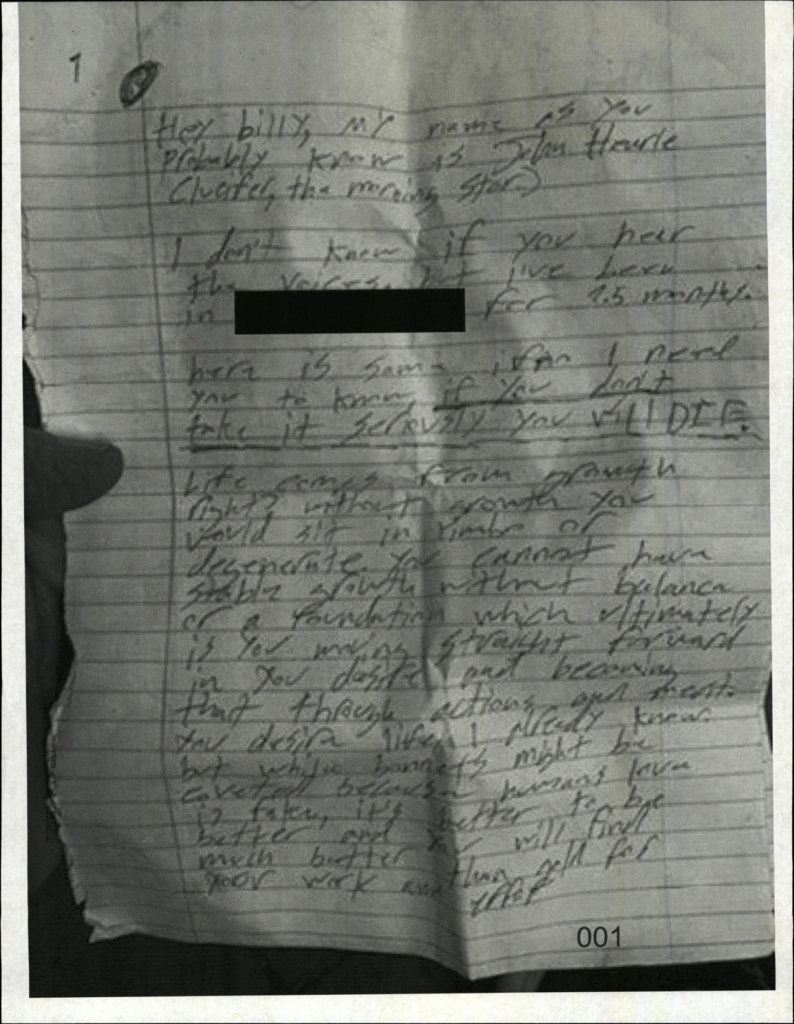 1
Hey billy, my name as you
probably know is John Hearle
(lucifer, the morning star)
I don't know if you hear
the voices, but i've been
in for 2.5 months.
here is some I need
you to know, if you don't
take it seriously you will DIE.
Life comes from growth
right? without growth you
would sit in limbo or
degenerate. you cannot have
stable growth without balance
or a foundation which ultimately
is you moving straight forward
in you desire and becoming
that through actions and
you desire life, I already know.
but while might be
coveted because humans love
is fake, it's better to be
better and you will find
much better than gold for
your work and
effort
001